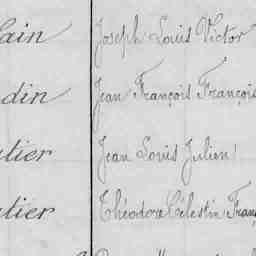 ain Joseph Louis Victor
din Jean François François
tier Jean Louis Julien
tier Théodore Célestin Franç